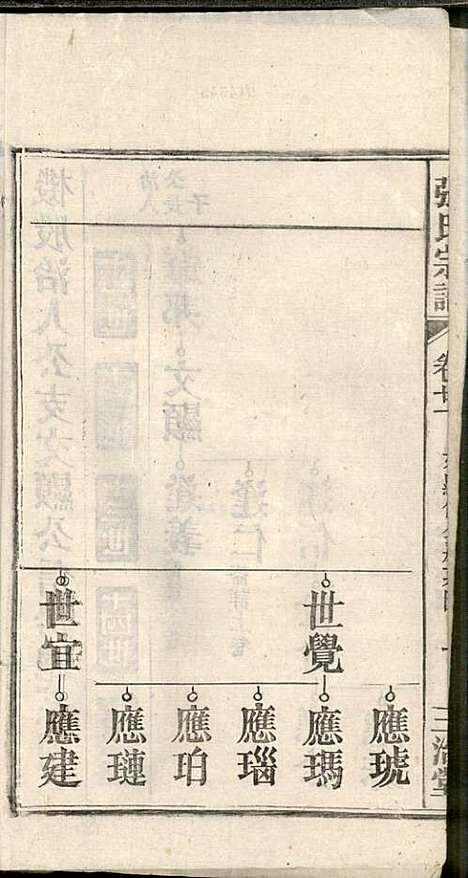 張氏宗譜
卷廿一
三治堂
世覺
應琥
應瑪
應瑙
應珀
應璉
世宜
應建